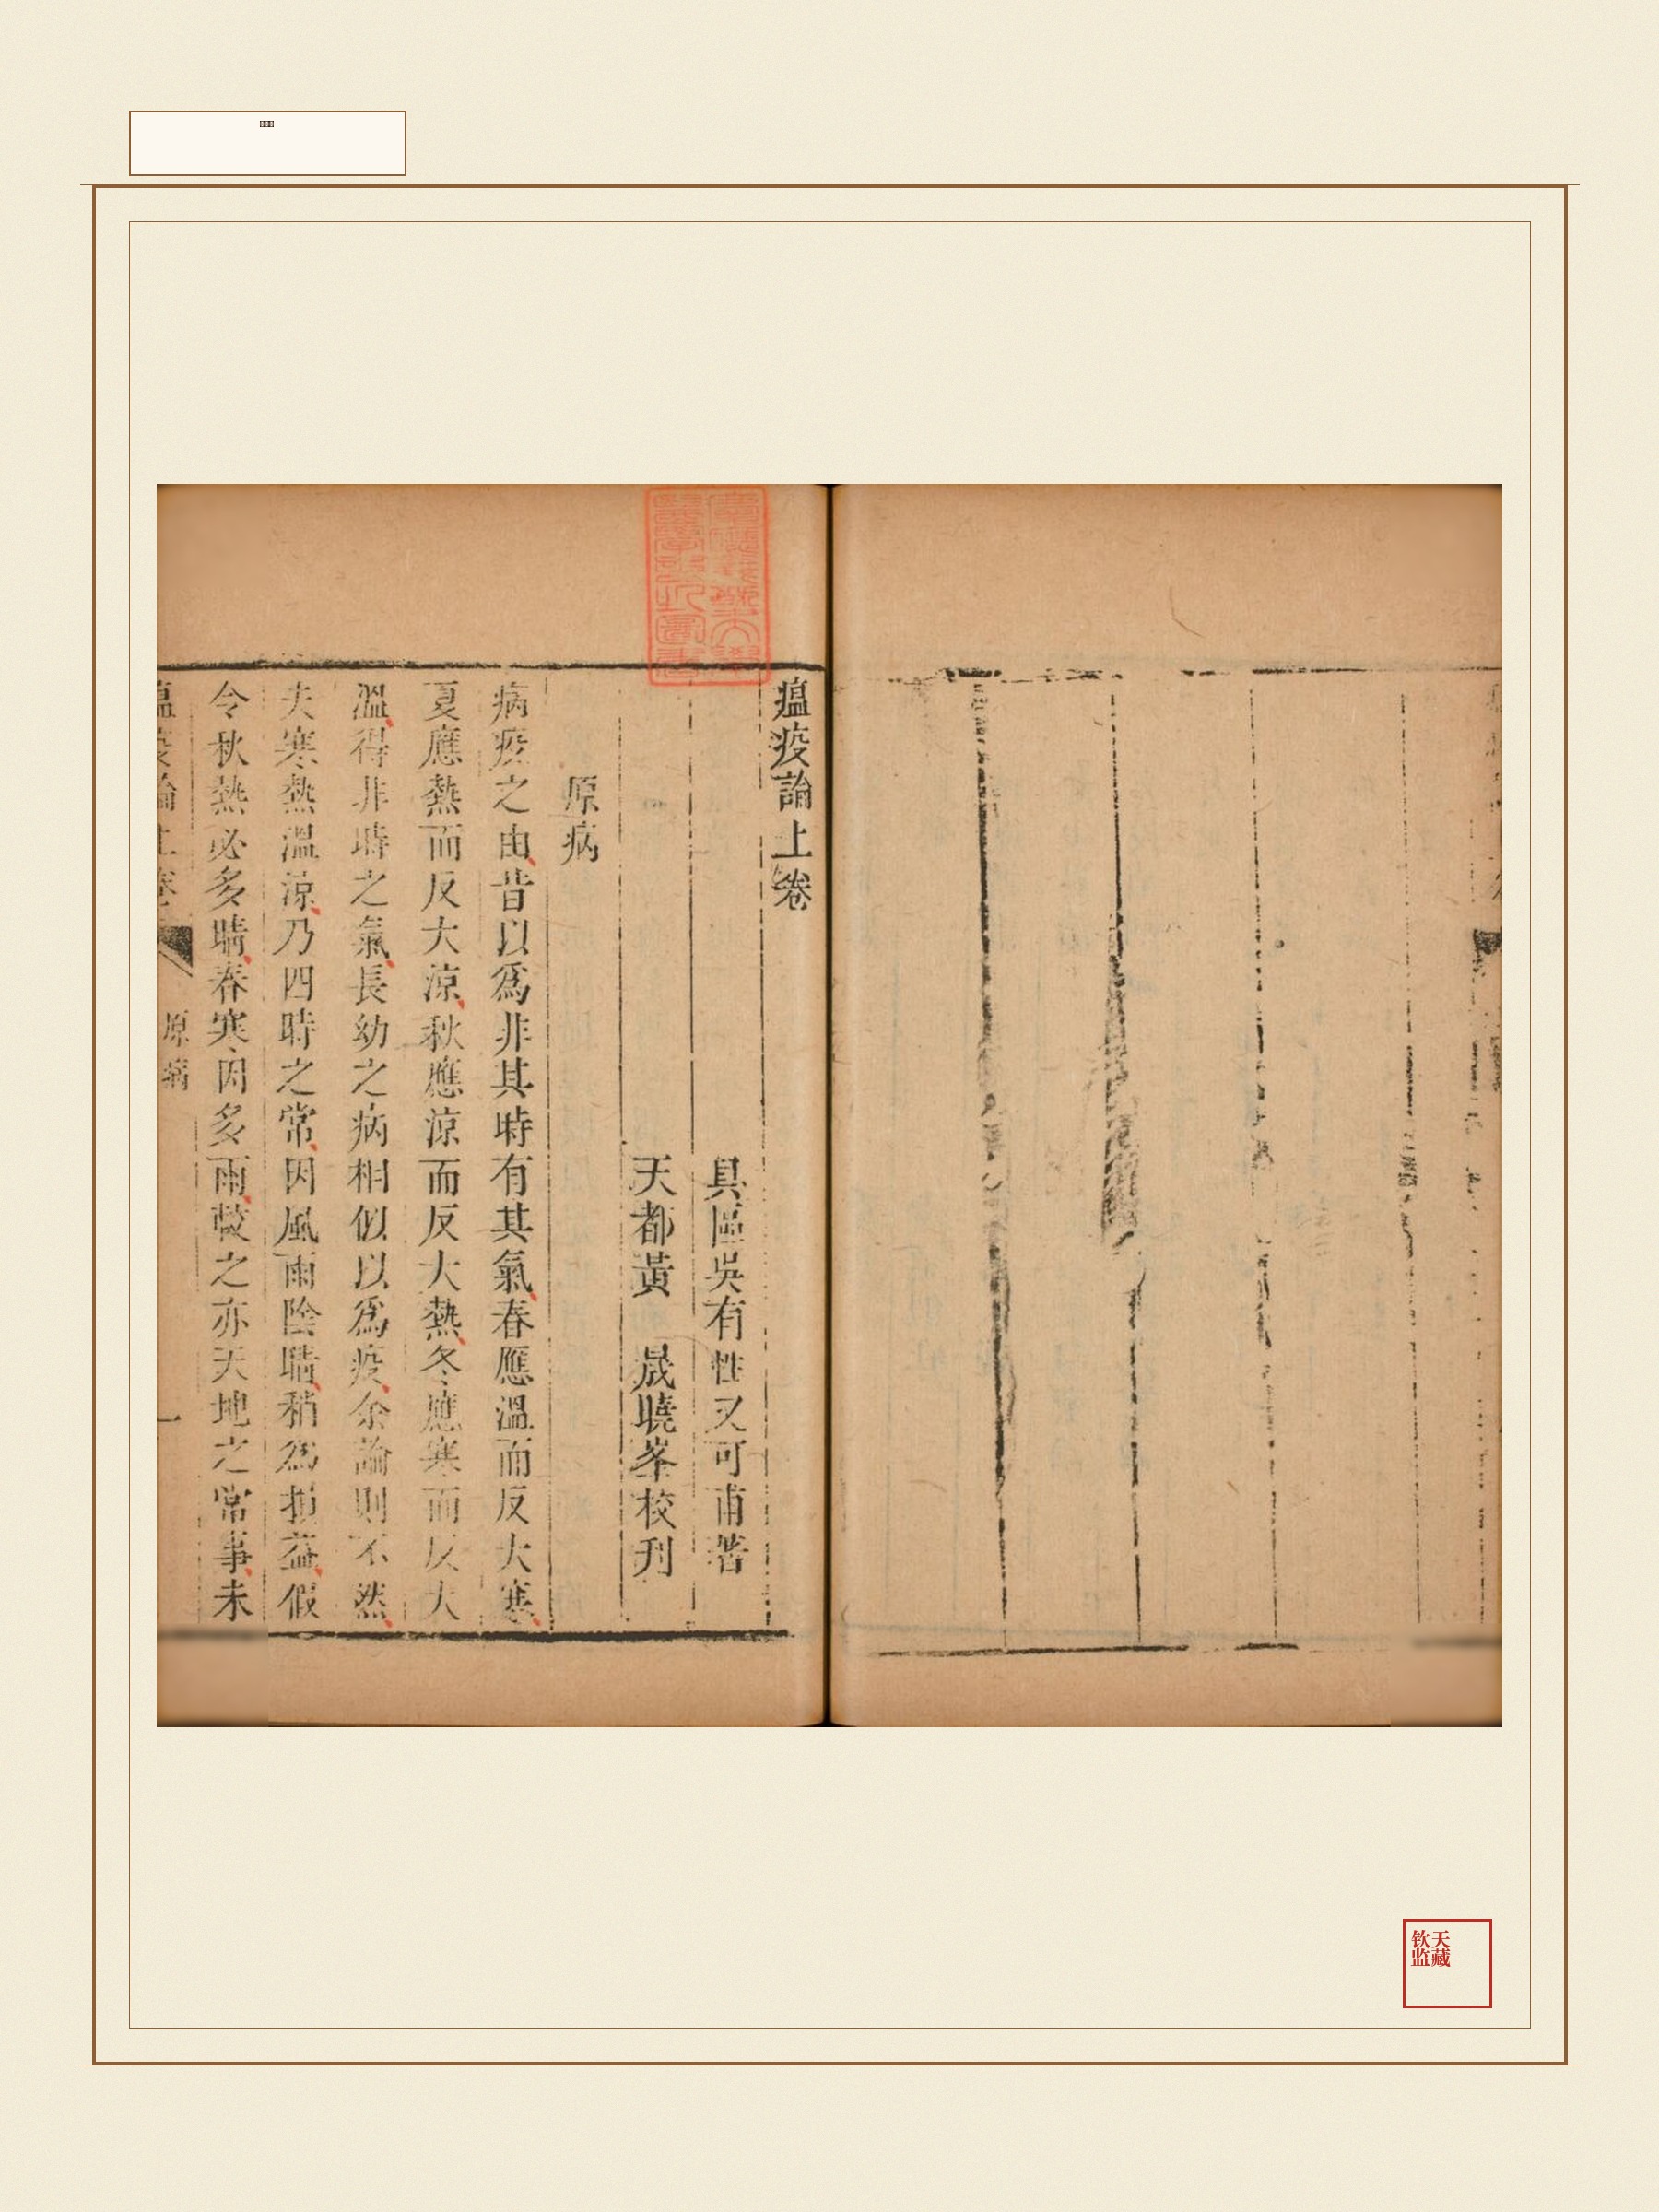 瘟疫論上卷
具區吳有性又可甫著
天都黃晟曉峯校刋
原病
病疫之由昔以爲非其時有其氣春應溫而反大寒
夏應熱而反大涼秋應涼而反大熱冬應寒而反大
溫得非時之氣長幼之病相似以爲疫余論則不然
夫寒熱溫涼乃四時之常因風雨陰晴稍爲損益假
令秋熱必多晴春寒因多雨較之亦天地之常事未
瘟疫論上卷
原病
一
天藏
钦监